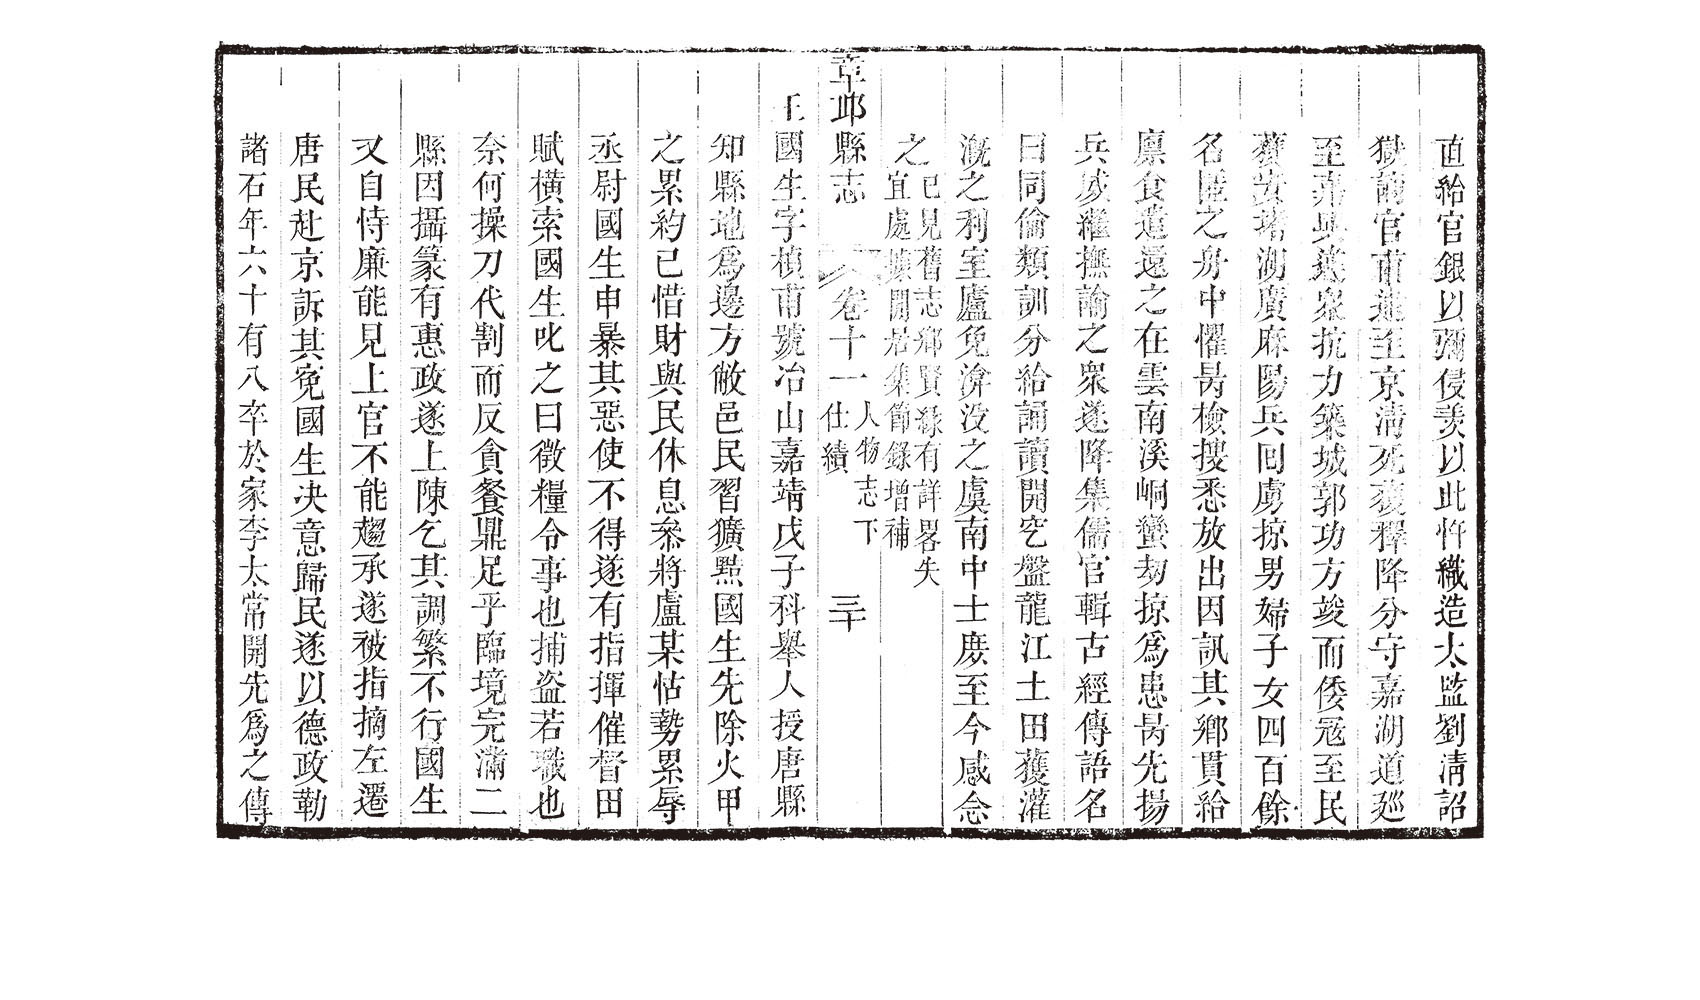 直給官銀以彌侵羡以此忤織造太監劉淸詔
獄謫官甫逮至京淸死獲釋降分守嘉湖道廵
至嘉興遂衆抗力築城郭功方竣而倭冦至民
獲安堵湖廣麻陽兵回虜掠男婦子女四百餘
名匿之舟中懼昺檢搜悉放出因訊其鄕貫給
廪食遣還之在雲南溪峒蠻刼掠爲患昺先揚
兵威繼撫諭之衆遂降集儒官輯古經傳語名
曰同倫類訓分給誦讀開穵盤龍江土田獲灌
漑之利室廬免渰没之虞南中士庶至今感念
之已見舊志鄕賢錄有詳畧失
宜處據開居集節錄增補
章邱縣志 卷十一 人物志下 仕績 三十
王國生字楨甫號冶山嘉靖戊子科舉人授唐縣
知縣地爲邊方敝邑民習獷㸃國生先除火甲
之累約己惜財與民休息叅將盧某怙勢累辱
丞尉國生申暴其惡使不得遂有指揮催督田
賦橫索國生叱之曰徵糧令事也捕盜若職也
奈何操刀代割而反貪餮鼎足乎臨境完滿二
縣因攝篆有惠政遂上陳乞其調繁不行國生
又自恃廉能見上官不能趨承遂被指摘左遷
唐民赴京訴其寃國生决意歸民遂以德政勒
諸石年六十有八卒於家李太常開先爲之傳